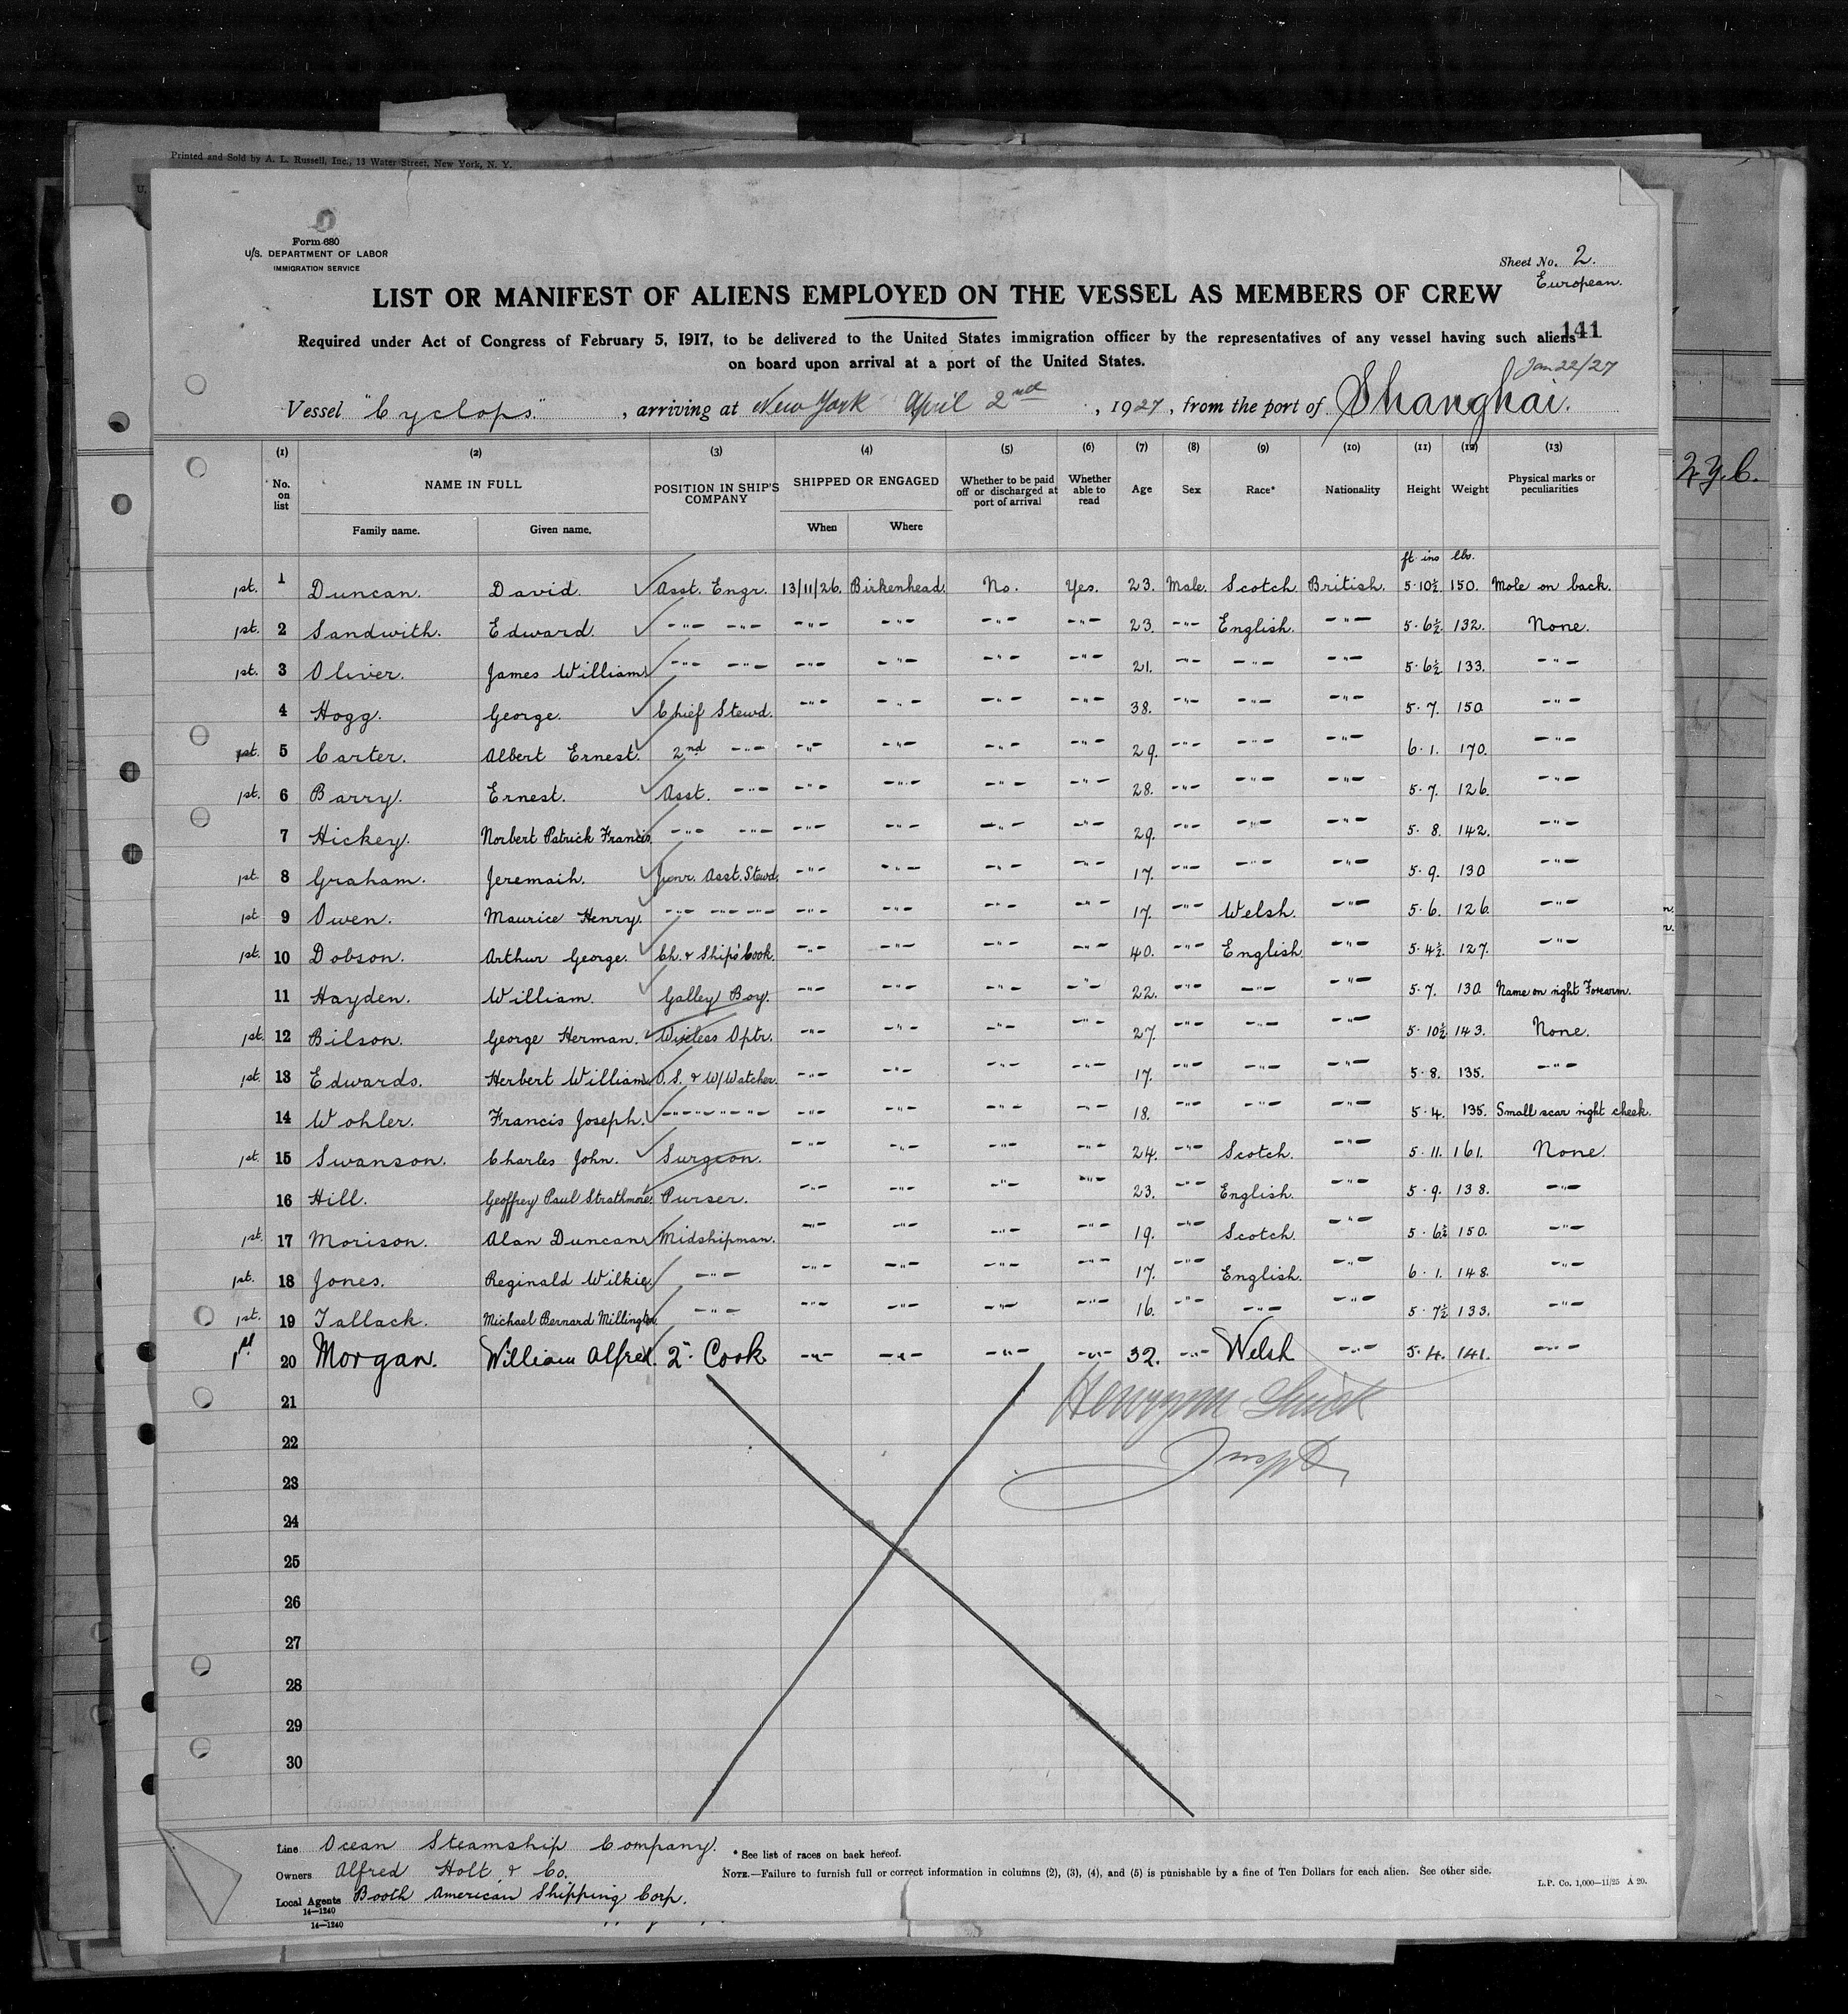 Printed and Sold by A. L. Russell, Inc., 13 Water Street, New York, N. Y.
U.
Form 680
U/S. DEPARTMENT OF LABOR
IMMIGRATION SERVICE
Sheet No. 2.
European.
LIST OR MANIFEST OF ALIENS EMPLOYED ON THE VESSEL AS MEMBERS OF CREW
141
Required under Act of Congress of February 5, 1917, to be delivered to the United States immigration officer by the representatives of any vessel having such aliens
on board upon arrival at a port of the United States.
Jan 22/27
Vessel "Cyclops" , arriving at New York April 2nd , 1927, from the port of Shanghai.
(1) (2) (3) (4) (5) (6) (7) (8) (9) (10) (11) (12) (13)
No. on list NAME IN FULL Family name. Given name. POSITION IN SHIP'S COMPANY SHIPPED OR ENGAGED When Where Whether to be paid off or discharged at port of arrival Whether able to read Age Sex Race* Nationality Height Weight Physical marks or peculiarities
ft ins lbs.
1st. 1 Duncan. David. Asst. Engr. 13/11/26. Birkenhead. No. Yes. 23. Male. Scotch. British. 5·10½. 150. Mole on back.
1st. 2 Sandwith. Edward. -"- -"- -"- -"- -"- -"- 23. -"- English. -"- 5·6½. 132. None.
1st. 3 Oliver. James William. -"- -"- -"- -"- -"- -"- 21. -"- -"- -"- 5·6½. 133. -"-
4 Hogg. George. Chief Stewd. -"- -"- -"- -"- 38. -"- -"- -"- 5·7. 150 -"-
1st. 5 Carter. Albert Ernest. 2nd -"- -"- -"- -"- -"- 29. -"- -"- -"- 6·1. 170. -"-
1st. 6 Barry. Ernest. Asst. -"- -"- -"- -"- -"- 28. -"- -"- -"- 5·7. 126. -"-
7 Hickey. Norbert Patrick Francis. -"- -"- -"- -"- -"- -"- 29. -"- -"- -"- 5·8. 142. -"-
1st. 8 Graham. Jeremaih. Junr. Asst. Stewd. -"- -"- -"- -"- 17. -"- -"- -"- 5·9. 130 -"-
1st 9 Owen. Maurice Henry. -"- -"- -"- -"- -"- -"- -"- 17. -"- Welsh. -"- 5·6. 126. -"-
1st. 10 Dobson. Arthur George. Ch. & Ship's Cook. -"- -"- -"- -"- 40. -"- English. -"- 5·4½. 127. -"-
11 Hayden. William. Galley Boy. -"- -"- -"- -"- 22. -"- -"- -"- 5·7. 130 Name on right Forearm.
1st. 12 Bilson. George Herman. Wireless Optr. -"- -"- -"- -"- 27. -"- -"- -"- 5·10½ 143. None.
1st. 13 Edwards. Herbert William. O.S. & W/Watcher. -"- -"- -"- -"- 17. -"- -"- -"- 5·8. 135. -"-
14 Wohler. Francis Joseph. -"-"-"-"- -"- -"- -"- -"- 18. -"- -"- -"- 5·4. 135. Small scar right cheek.
1st. 15 Swanson. Charles John. Surgeon. -"- -"- -"- -"- 24. -"- Scotch. -"- 5·11. 161. None.
16 Hill. Geoffrey Paul Strathmore. Purser. -"- -"- -"- -"- 23. -"- English. -"- 5·9. 138. -"-
1st. 17 Morison. Alan Duncan. Midshipman. -"- -"- -"- -"- 19. -"- Scotch. -"- 5·6½ 150. -"-
1st. 18 Jones. Reginald Wilkie. -"- -"- -"- -"- -"- 17. -"- English. -"- 6·1. 148. -"-
1st. 19 Tallack. Michael Bernard Millington. -"- -"- -"- -"- -"- 16. -"- -"- -"- 5·7½ 133. -"-
1st 20 Morgan. William Alfred. 2" Cook -"- -"- -"- -"- 32. -"- Welsh -"- 5·4. 141. -"-
21
22
23
24
25
26
27
28
29
30
Inspt
2 y. C.
Line Ocean Steamship Company.
* See list of races on back hereof.
Owners Alfred Holt & Co.
NOTE.—Failure to furnish full or correct information in columns (2), (3), (4), and (5) is punishable by a fine of Ten Dollars for each alien. See other side.
Local Agents Booth American Shipping Corp.
L.P. Co. 1,000—11/25 A 20.
14—1240
14—1240